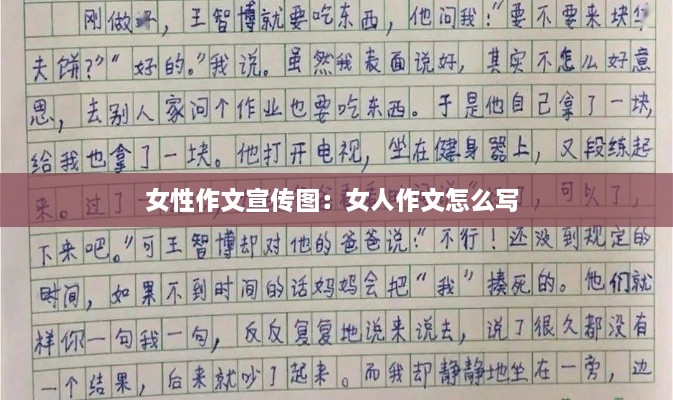 刚做好，王智博就要吃东西，他问我："要不要来块华
夫饼？""好的。"我说。虽然我表面说好，其实不怎么好意
思，去别人家问个作业也要吃东西。于是他自己拿了一块，
给我也拿了一块。他打开电视，坐在健身器上，又段练起
来。过了 可以了，
女性作文宣传图：女人作文怎么写
下来吧。"可王智博却对他的爸爸说："不行！还没到规定的
时间，如果不到时间的话妈妈会把"我"揍死的。他们就
样你一句我一句，反反复复地说来说去，说了很久都没有
一个结果，后来就吵了起来。而我却静静地坐在一旁，边